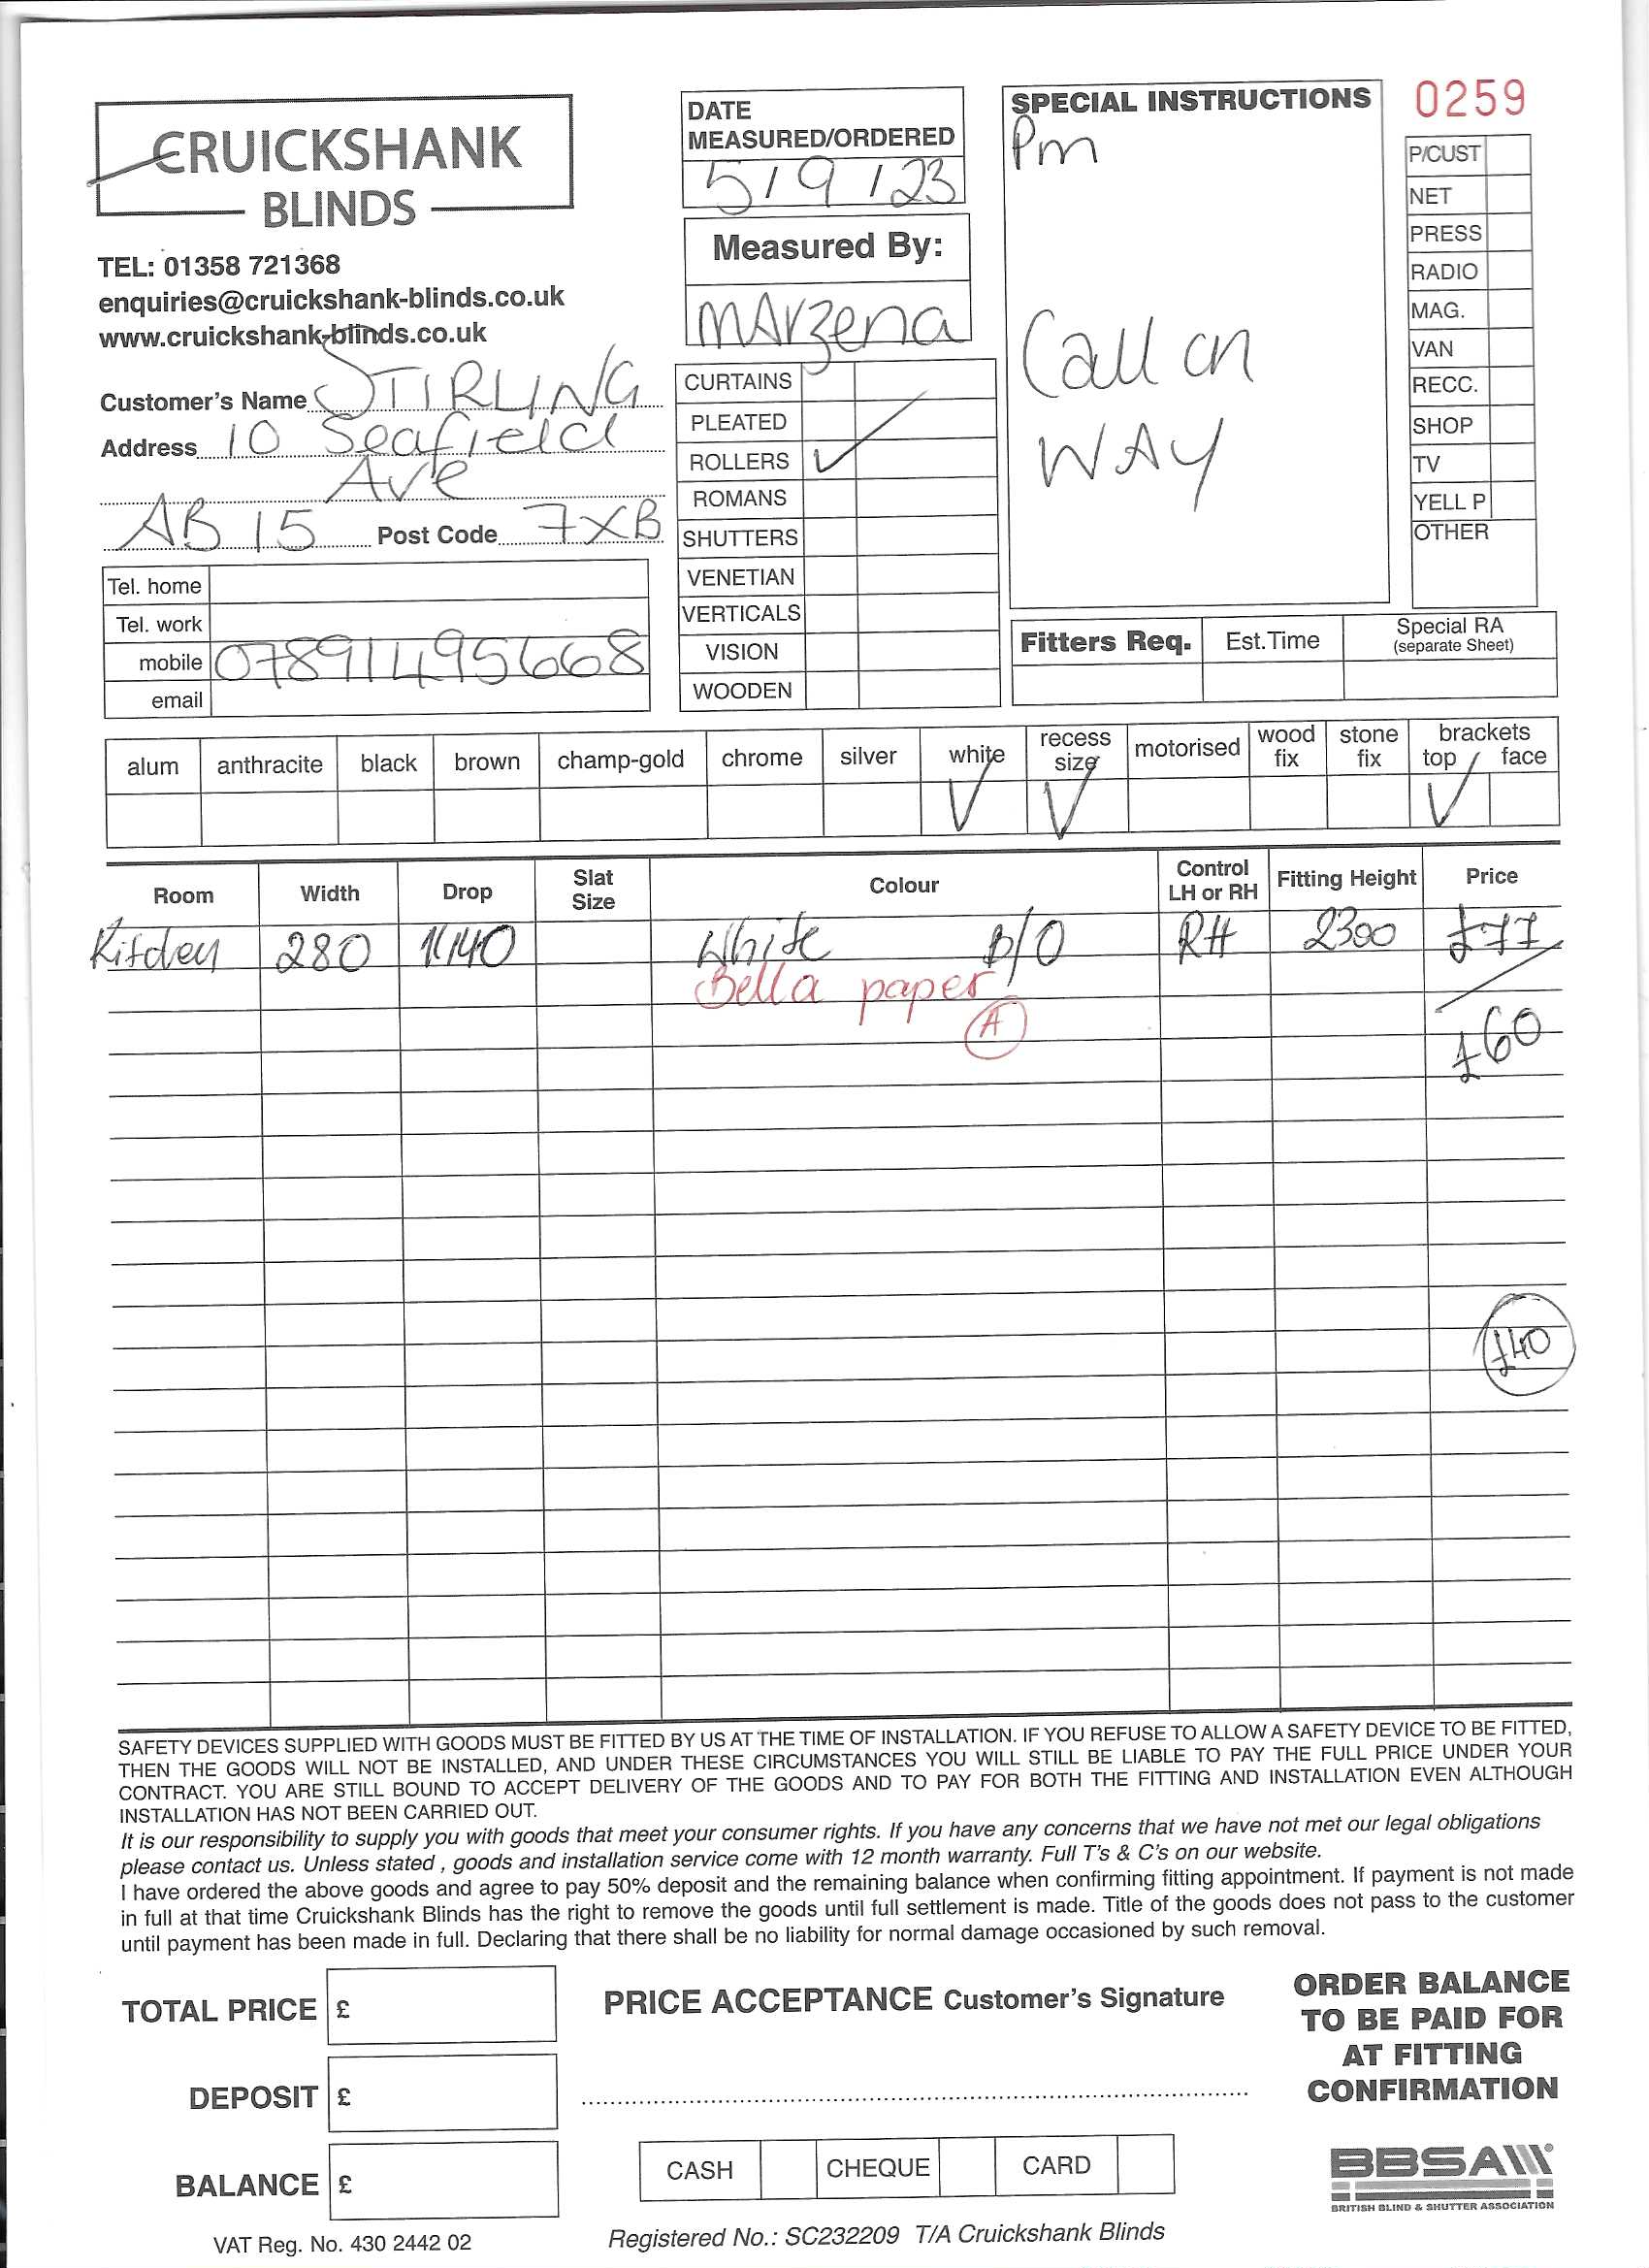 CRUICKSHANK
BLINDS
TEL: 01358 721368
enquiries@cruickshank-blinds.co.uk
www.cruickshank-blinds.co.uk
Customer's Name STIRLING
Address 10 Seafield
Ave
AB 15 Post Code 7XB
Tel. home
Tel. work
mobile 07891495668
email
DATE
MEASURED/ORDERED
5/9/23
Measured By:
MArzena
CURTAINS
PLEATED
ROLLERS ✓
ROMANS
SHUTTERS
VENETIAN
VERTICALS
VISION
WOODEN
SPECIAL INSTRUCTIONS
Pm
Call on
WAY
0259
P/CUST
NET
PRESS
RADIO
MAG.
VAN
RECC.
SHOP
TV
YELL P
OTHER
Fitters Req. Est.Time Special RA
(separate Sheet)
alum anthracite black brown champ-gold chrome silver white recess size motorised wood fix stone fix brackets top face
✓ ✓ ✓
Room Width Drop Slat Size Colour Control LH or RH Fitting Height Price
Kitchen 280 1140 White B/O RH 2300 £77
Bella paper
A
£60
£40
SAFETY DEVICES SUPPLIED WITH GOODS MUST BE FITTED BY US AT THE TIME OF INSTALLATION. IF YOU REFUSE TO ALLOW A SAFETY DEVICE TO BE FITTED,
THEN THE GOODS WILL NOT BE INSTALLED, AND UNDER THESE CIRCUMSTANCES YOU WILL STILL BE LIABLE TO PAY THE FULL PRICE UNDER YOUR
CONTRACT. YOU ARE STILL BOUND TO ACCEPT DELIVERY OF THE GOODS AND TO PAY FOR BOTH THE FITTING AND INSTALLATION EVEN ALTHOUGH
INSTALLATION HAS NOT BEEN CARRIED OUT.
It is our responsibility to supply you with goods that meet your consumer rights. If you have any concerns that we have not met our legal obligations
please contact us. Unless stated , goods and installation service come with 12 month warranty. Full T's & C's on our website.
I have ordered the above goods and agree to pay 50% deposit and the remaining balance when confirming fitting appointment. If payment is not made
in full at that time Cruickshank Blinds has the right to remove the goods until full settlement is made. Title of the goods does not pass to the customer
until payment has been made in full. Declaring that there shall be no liability for normal damage occasioned by such removal.
TOTAL PRICE £
DEPOSIT £
BALANCE £
VAT Reg. No. 430 2442 02
PRICE ACCEPTANCE Customer's Signature
CASH CHEQUE CARD
Registered No.: SC232209 T/A Cruickshank Blinds
ORDER BALANCE
TO BE PAID FOR
AT FITTING
CONFIRMATION
BBSA
BRITISH BLIND & SHUTTER ASSOCIATION